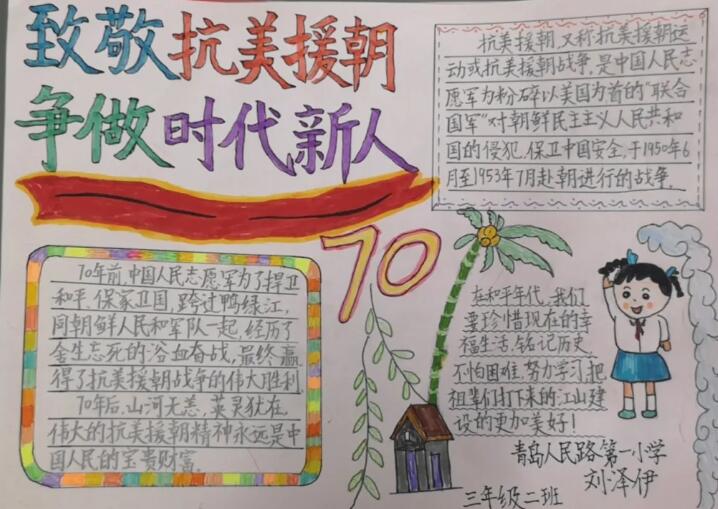 致敬抗美援朝
争做时代新人
抗美援朝,又称抗美援朝运
动或抗美援朝战争,是中国人民志
愿军为粉碎以美国为首的“联合
国军”对朝鲜民主主义人民共和
国的侵犯,保卫中国安全,于1950年6
月至1953年7月赴朝进行的战争。
70
70年前,中国人民志愿军为了捍卫
和平,保家卫国,跨过鸭绿江,
同朝鲜人民和军队一起,经历了
舍生忘死的浴血奋战,最终赢
得了抗美援朝战争的伟大胜利.
70年后,山河无恙,英灵犹在,
伟大的抗美援朝精神永远是中
国人民的宝贵财富。
在和平年代,我们
要珍惜现在的幸
福生活,铭记历史,
不怕困难,努力学习,把
祖辈们打下来的江山建
设的更加美好!
青岛人民路第一小学
刘泽伊
三年级二班